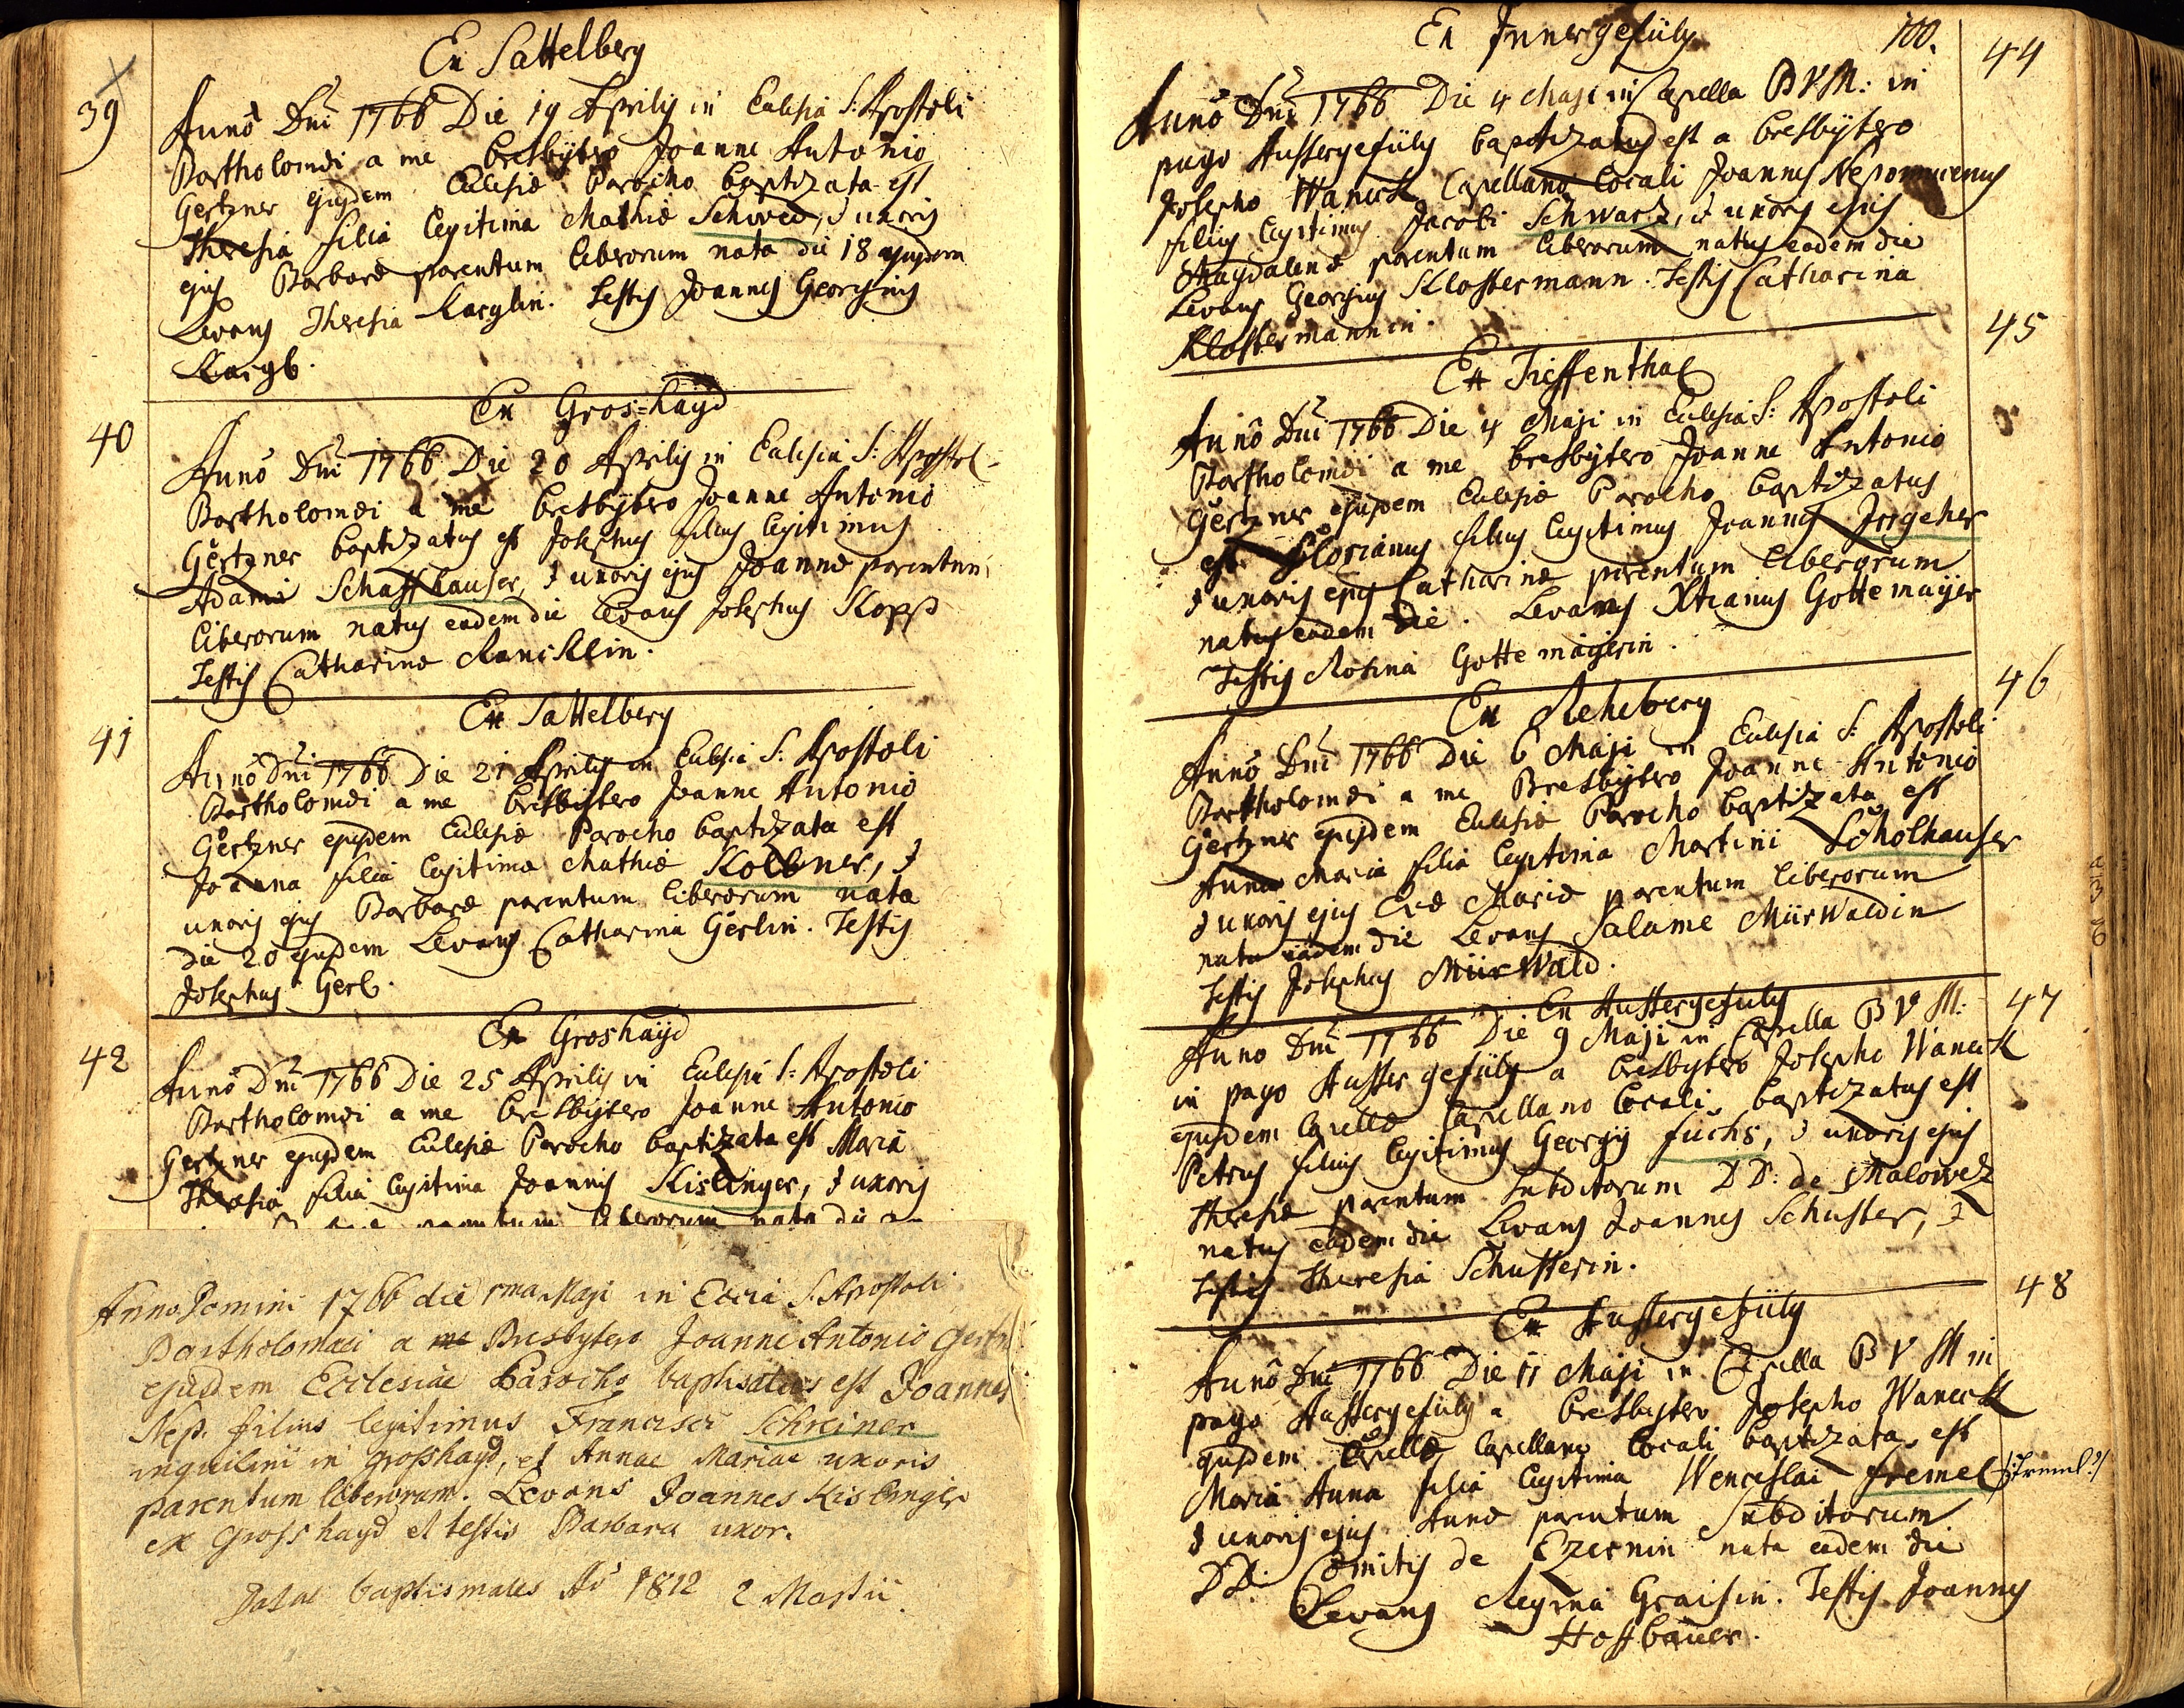 Ex Sattelberg
39
Anno Dni 1766 Die 19 Aprilis in Eccl̄esia S: Apostoli
Bartholomæi a me Presbytero Joanne Antonio
Gertzner ejusdem Ecclesiæ Parocho baptizata est
Theresia filia legitima Mathiæ Schwed, & uxoris
ejus Barbaræ parentum liberorum nata die 18 ejusdem
Levans Theresia Karglin. Testis Joannes Georgius
Kargl.
Ex Gros=hayd
40
Anno Dni 1766 Die 20 Aprilis in Ecclesia S: Apostol-
Bartholomæi a me Presbytero Joanne Antonio
Gertzner baptizatus est Josephus filius legitimus
Adami Schaffhauser, & uxoris ejus Joannæ parentum
liberorum natus eadem die Levans Josephus Kopp
Testis Catharina
Ex Sattelberg
41
Anno Dni 1766 Die 21 Aprilis in Ecclesia S: Apostoli
Bartholomæi a me Presbytero Joanne Antonio
Gertzner ejusdem Ecclesiæ Parocho baptizata est
Joanna filia legitima Mathiæ Kollner, &
uxoris ejus Barbaræ parentum liberorum nata
die 20 ejusdem Levans Catharina Gerlin. Testis
Josephus Gerl.
Ex Groshayd
42
Anno Dni 1766 Die 25 Aprilis in Ecclesia S: Apostoli
Bartholomæi a me Presbytero Joanne Antonio
Gertzner ejusdem Ecclesiæ Parocho baptizata est Maria
Theresia filia legitima Joannis Kislinger, & uxoris
parentum liberorum nata die
Anno Domini 1766 die 1ma Maji in Eccia S. Apostoli
Bartholomaei a me Presbytero Joanne Antonio Gertz
ejusdem Ecclesiae Parocho baptisatus est Joannes
Nep. filius legitimus Francisci Schreiner
inquilini in Grosshayd, et Annae Mariae uxoris
parentum liberorum. Levans Joannes Kislinger
ex Grosshayd et testis Barbara uxor.
Datae baptismales Ao 1812 2 Martii.
Ex Innergefüld
100.
44
Anno Dni 1766 Die 4 Maji in Capella B V M: in
pago Aussergefüld baptizatus est a Presbytero
Josepho Waneck Capellano locali Joannes Nepomucenus
filius legitimus Jacobi Schwarz, & uxoris ejus
Magdalenæ parentum liberorum natus eadem die
Levans Georgius Klostermann. Testis Catharina
Klostermannin.
45
Ex Tieffenthal
Anno Dni 1766 Die 4 Maji in Ecclesia S: Apostoli
Bartholomæi a me Presbytero Joanne Antonio
Gertzner ejusdem Ecclesiæ Parocho baptizatus
est Florianus filius legitimus Joannis Irrgeher
& uxoris ejus Catharinæ parentum liberorum
natus eadem die. Levans Xtianus Gottemaijer
Testis Rosina Gottemaijerin.
46
Ex Rehberg
Anno Dni 1766 Die 6 Maji in Ecclesia S: Apostoli
Bartholomæi a me Presbytero Joanne Antonio
Gertzner ejusdem Ecclesiæ Parocho baptizata est
Anna Maria filia legitima Martini Scholhauser
& uxoris ejus Evæ Mariæ parentum liberorum
nata eadem die Levans Salame Mürwaldin
Testis Josephus Mürwald.
Ex Aussergefüld
47
Anno Dni 1766 Die 9 Maji in Capella B V M:
in pago Aussergefüld a Presbytero Josepho Waneck
ejusdem Capellæ Capellano locali baptizatus est
Petrus filius legitimus Georgij Fuchs, & uxoris ejus
Theresiæ parentum Subditorum D D: de Malowez
natus eadem die Levans Joannes Schuster, &
testis Theresia Schusterin.
48
Ex Aussergefüld
Anno Dni 1766 Die 11 Maji in Capella B V M in
pago Aussergefüld a Presbytero Josepho Waneck
ejusdem Capellæ Capellano locali baptizata est
Maria Anna filia legitima Wenceslai Fremel /:Freml?:/
& uxoris ejus Annæ parentum Subditorum
DD: Comitis de Czernin nata eadem die
Levans Regina Graisin. Testis Joannes
Hoffbauer.